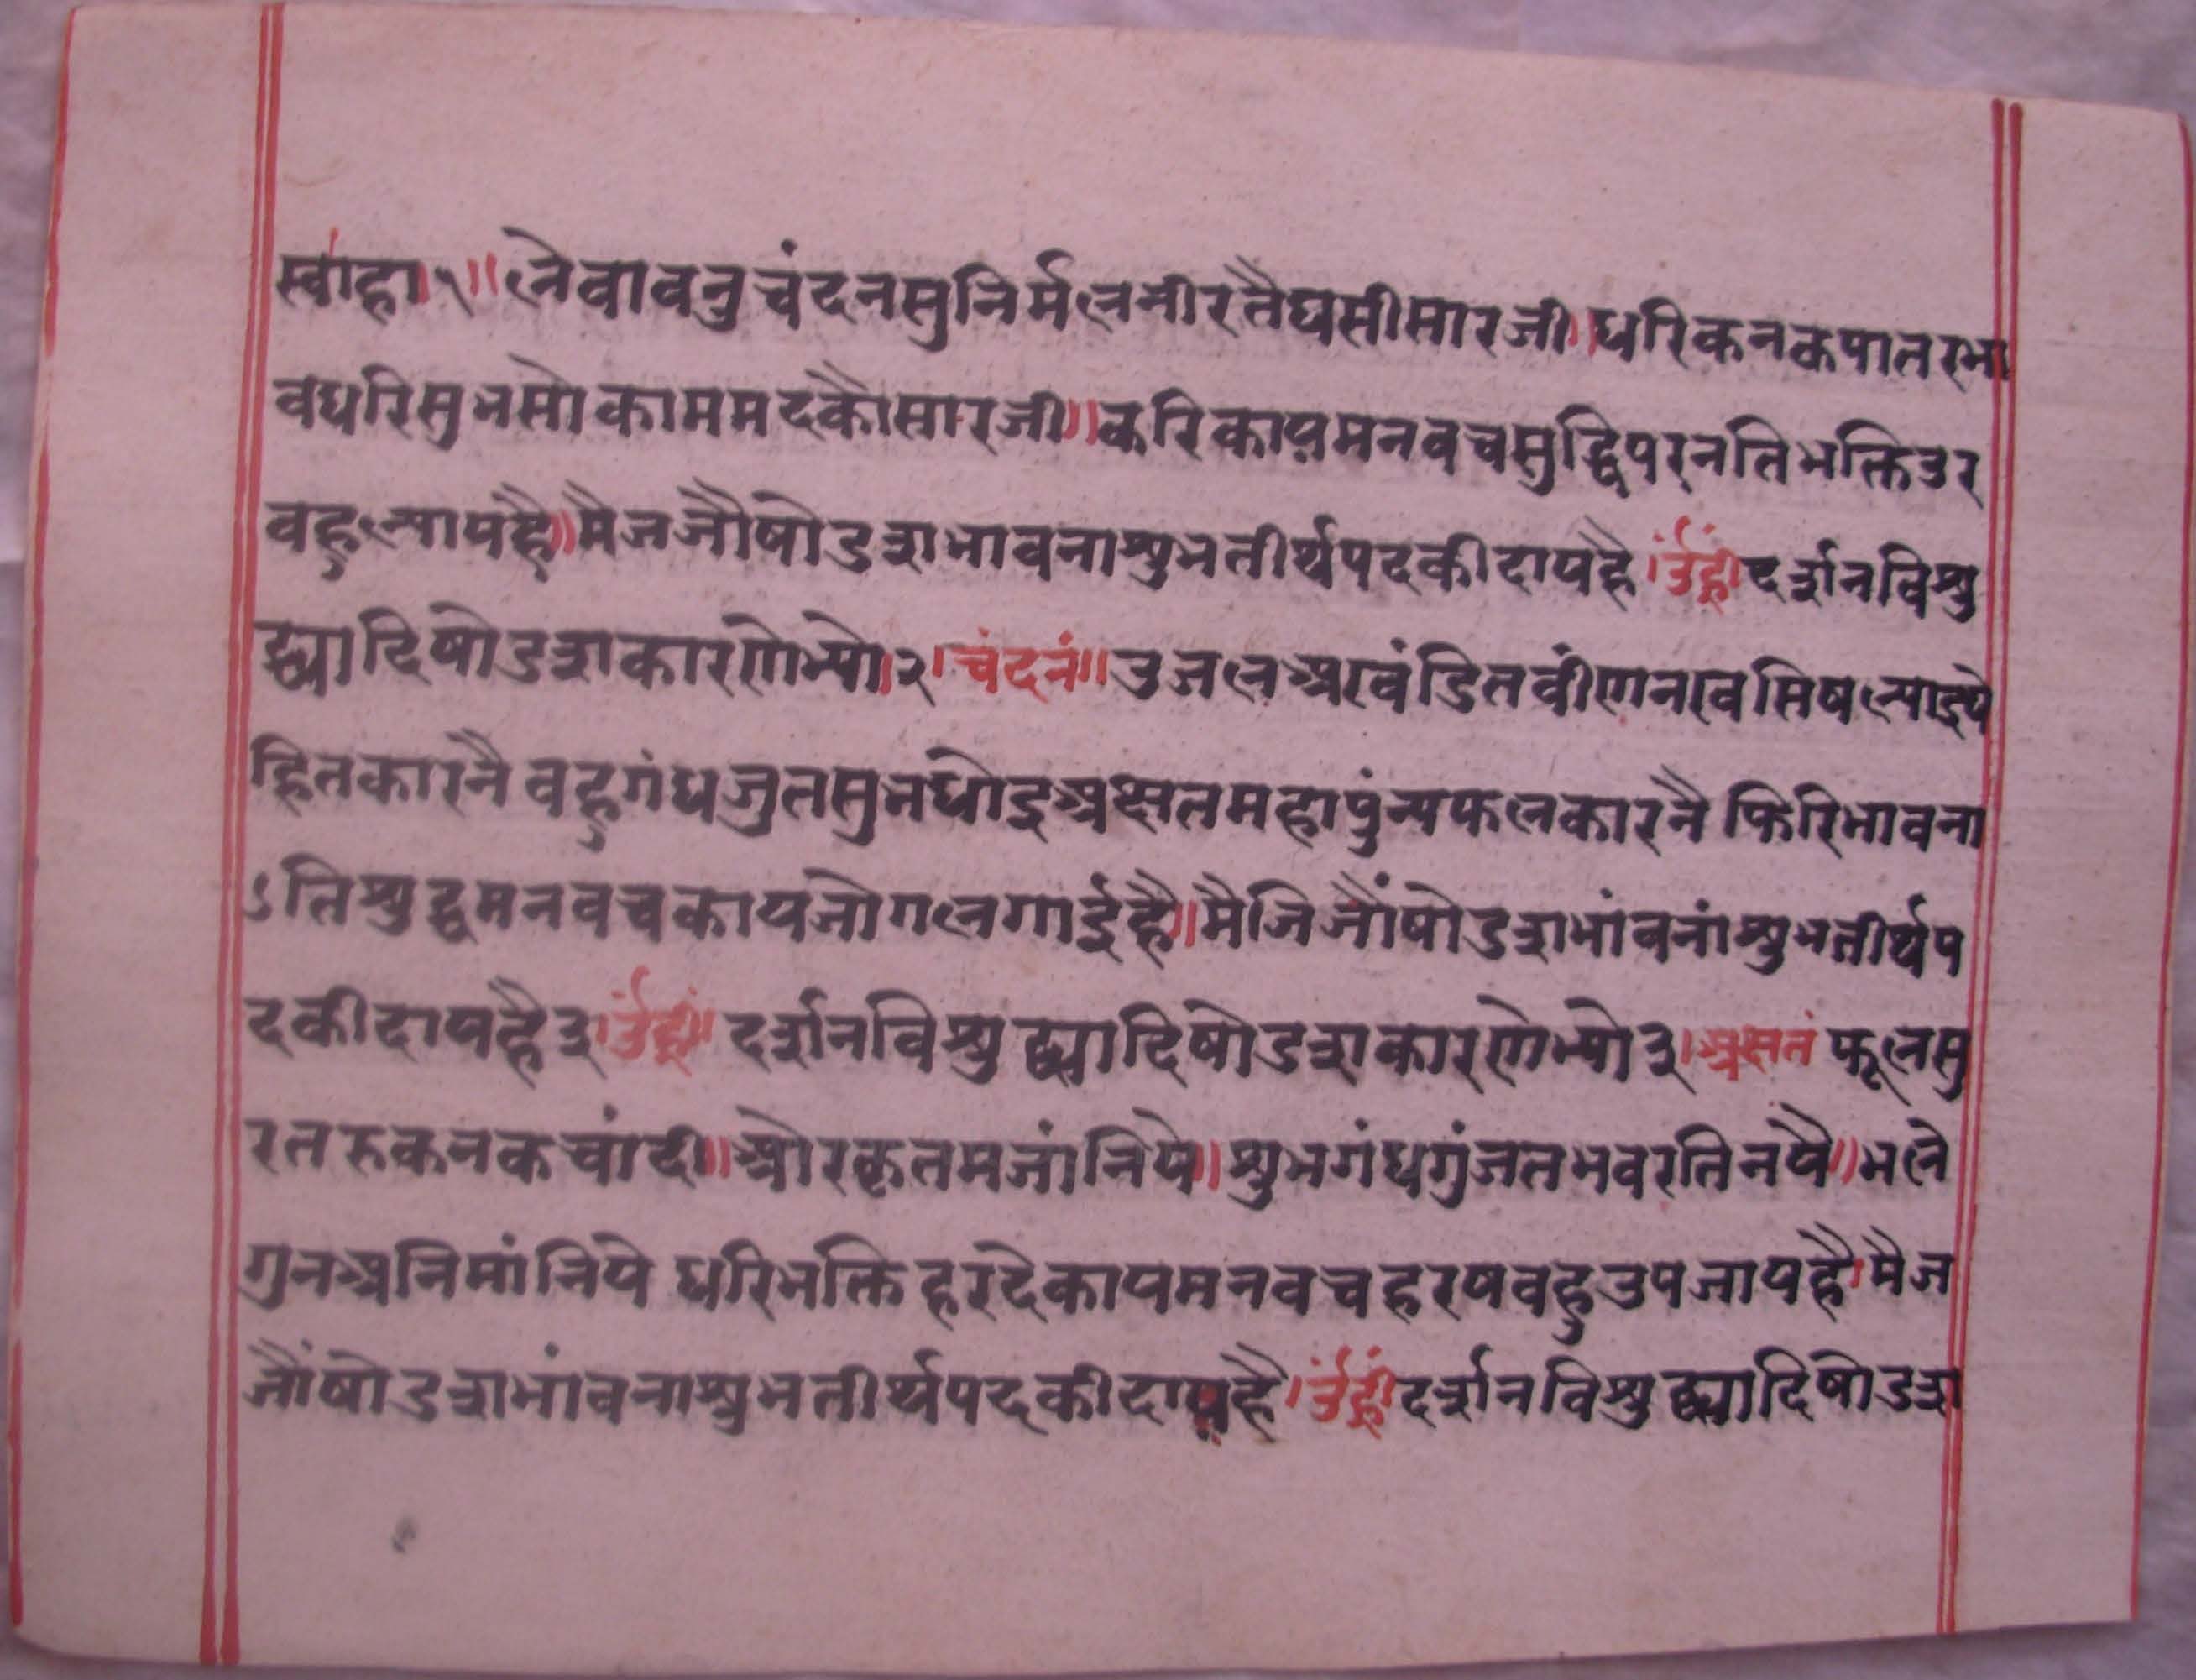 स्वाहा।१॥लेवावनुचंदनसुनिर्मलनीरतैघसीसारजी॥धरिकनकपातरभा
वधरिसुभसोकाममदकौसारजी॥करिकायमनवचसुद्धिपरनतिभक्तिउर
वहुल्यायहै॥मैजजौषोडशभावनाशुभतीर्थपदकीदायहै।उंह्रींदर्शनविशु
द्ध्यादिषोडशकारणेभ्यो।२।चंदनं॥उजलअखंडितवींणनखसिषल्याइये
हितकारनैवहुगंधजुतसुभधोइअक्षतमहापुंन्यफलकारनैफिरिभावना
ऽतिशुद्धमनवचकायजोगलगाईहै॥मैजिजौंषोडशभांवनांशुभतीर्थप
दकीदायहै३।उंह्रीं॥दर्शनविशुद्ध्यादिषोडशकारणेभ्यो३।अक्षतंफूलसु
रतरुकनकचांदी॥ओरकृतमजांनिये॥शुभगंधगुंजतभवरतिनपै॥भले
गुनअनिमांनियेधरिभक्तिहरदेकायमनवचहरषवहुउपजायहै।मैज
जौंषोडशभांवनाशुभतीर्थपदकीदायहै।उंह्रींदर्शनविशुद्ध्यादिषोडश